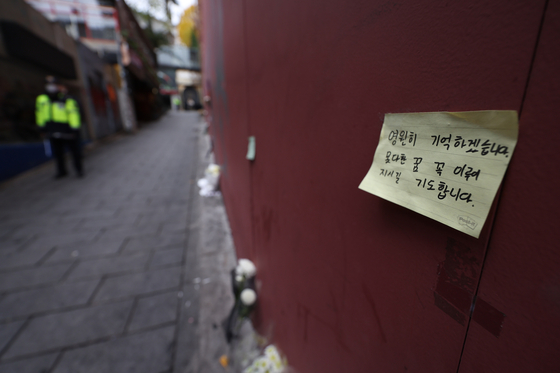 영원히 기억하겠습니다.
못다한 꿈 꼭 이뤄
지시길 기도합니다.